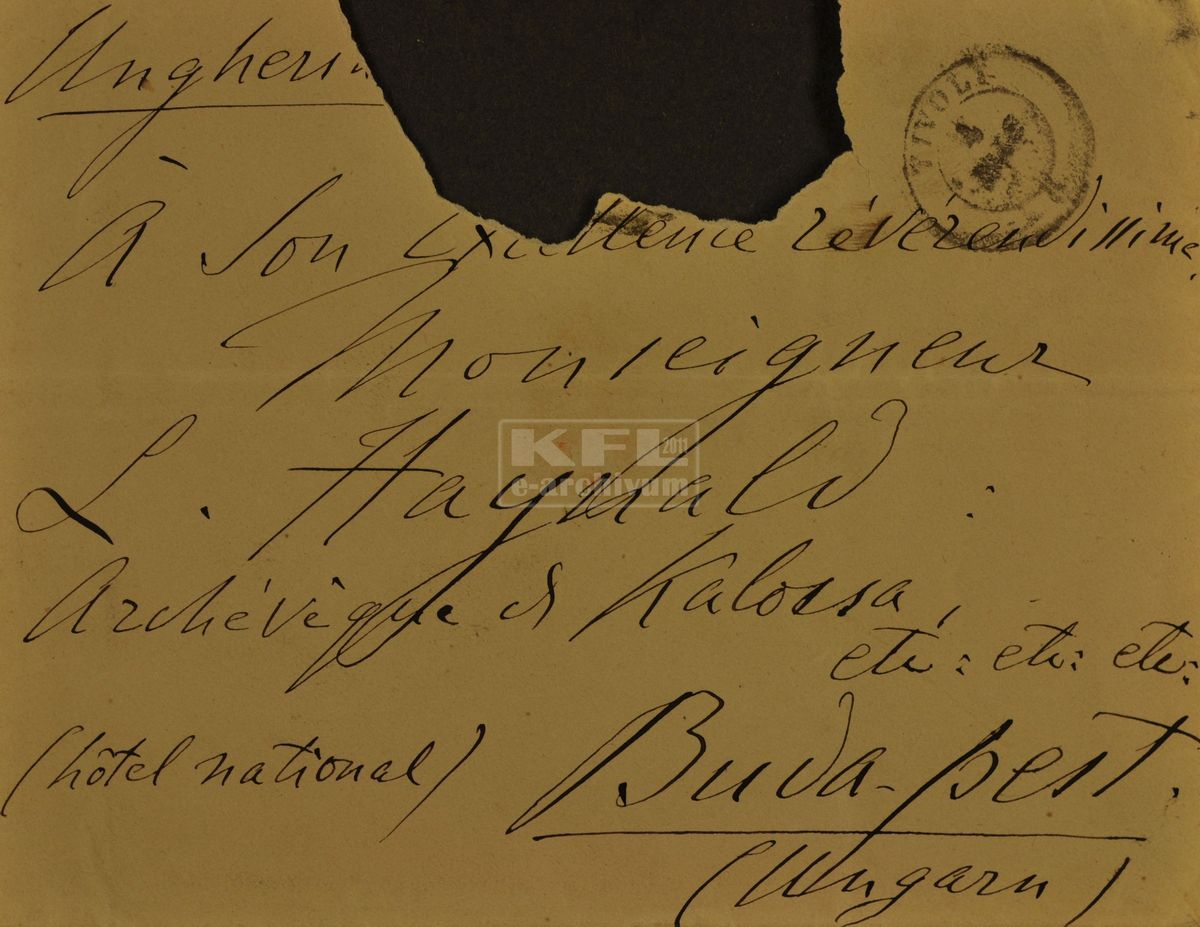 Ungheria
TIVOLI
À Son Excellence révérendissime
Monseigneur
L. Haynald.
Archévêque de Kalossa,
etc: etc: etc:
(hôtel national)
Buda-pest.
(Ungarn)
KFL 2011
e-archivum